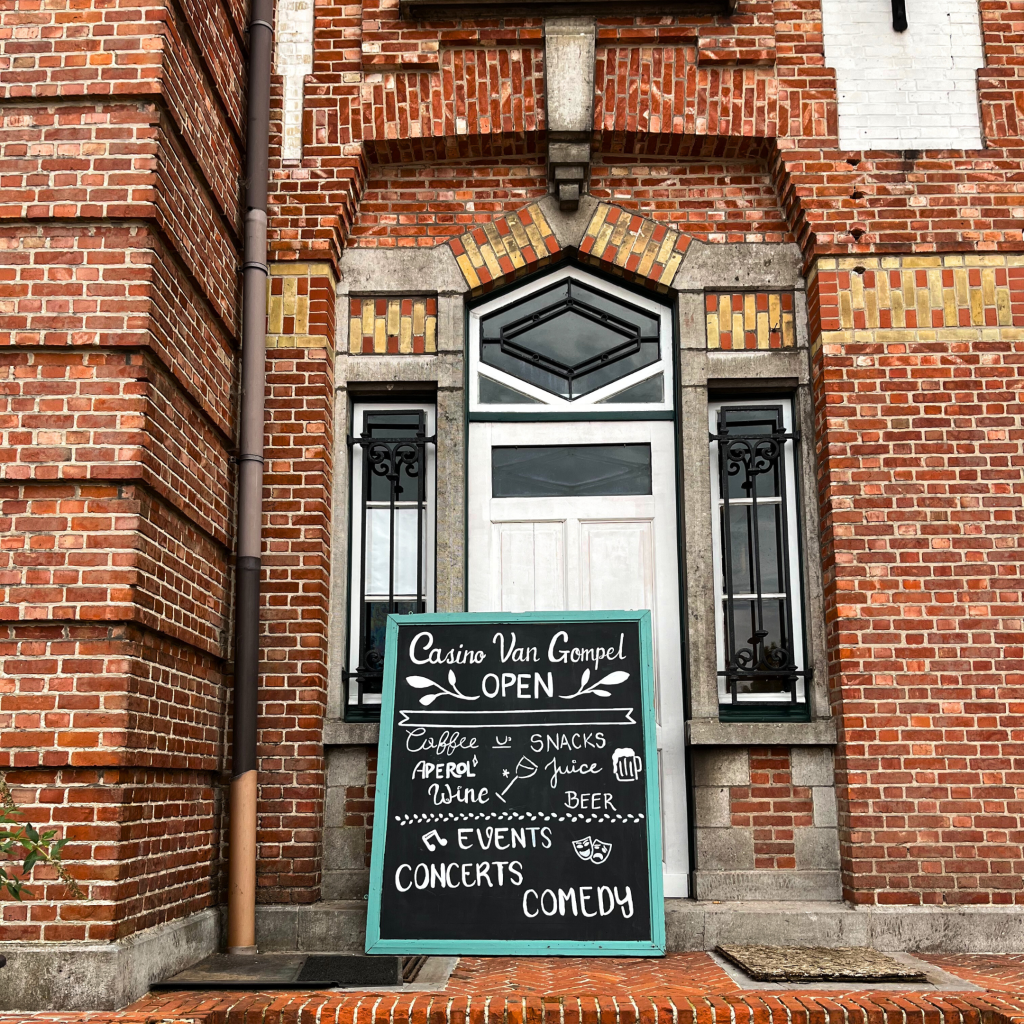 Casino Van Gompel
OPEN
Coffee SNACKS
APEROL Juice
Wine BEER
EVENTS
CONCERTS
COMEDY